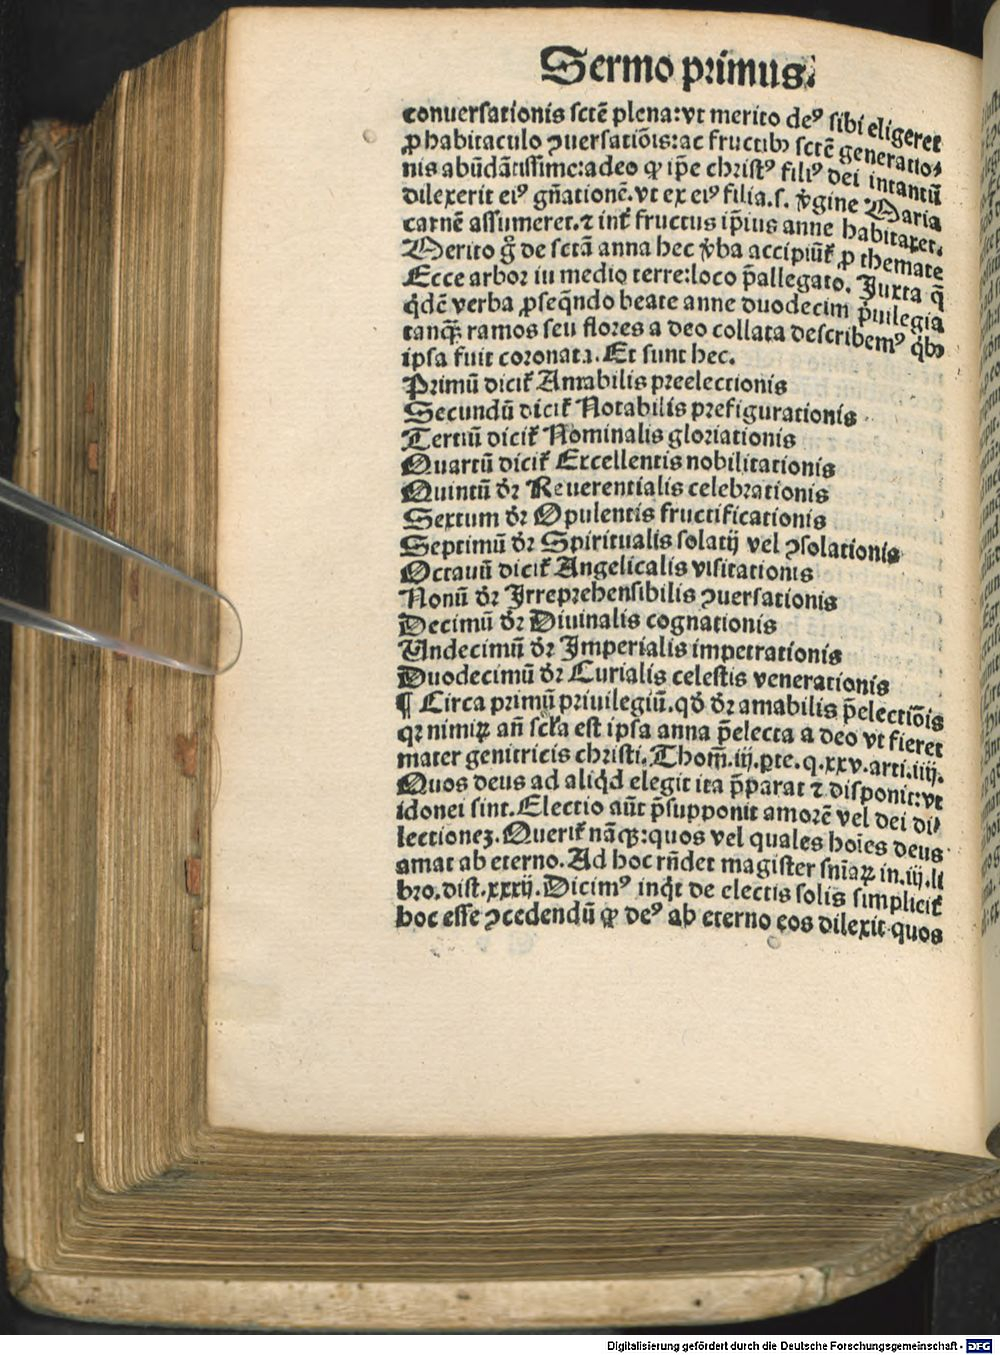 Sermo primus.
conuersationis sctē plena:vt merito deꝰ sibi eligeret
ꝓ habitaculo ꝯuersatiōis:ac fructibꝫ sctē generatio⸗
nis abūdātissime:adeo ꝙ ip̄e christꝰ filiꝰ dei intantū
dilexerit eiꝰ gn̄ationē.vt ex eiꝰ filia.s. v̓gine Maria
carnē assumeret.⁊ int̓ fructus ip̄ius anne habitaret.
Merito g̊ de sctā anna hec v̓ba accipiūt̉ ꝓ themate
Ecce arbor in medio terre:loco p̄allegato. Juxta q̄
q̇dē verba ꝓseq̄ndo beate anne duodecim p̓uilegia
tanq̄ꝫ ramos seu flores a deo collata describemꝰ q̇bꝫ
ipsa fuit coronata. Et sunt hec.
Primū dicit̉ Amabilis preelectionis
Secundū dicit̉ Notabilis prefigurationis
Tertiū dicit̉ Nominalis gloriationis
Quartū dicit̉ Excellentis nobilitationis
Quintū dr̄ Reuerentialis celebrationis
Sextum dr̄ Opulentis fructificationis
Septimū dr̄ Spiritualis solatij vel ꝯsolationis
Octauū dicit̉ Angelicalis visitationis
Nonū dr̄ Irreprehensibilis ꝯuersationis
Decimū dr̄ Diuinalis cognationis
Undecimū dr̄ Imperialis impetrationis
Duodecimū dr̄ Curialis celestis venerationis
¶ Circa primū priuilegiū.qd̄ dr̄ amabilis p̄electiōis
qꝛ nimiꝝ an̄ scl̄a est ipsa anna p̄electa a deo vt fieret
mater genitricis christi. Thom̄.iij.ꝑte.q.xxv.arti.iiij.
Quos deus ad aliq̇d elegit ita p̄parat ⁊ disponit:vt
idonei sint. Electio aūt p̄supponit amorē vel dei di⸗
lectioneꝫ. Querit̉ nāqꝫ:quos vel quales hoīes deus
amat ab eterno. Ad hoc rn̄det magister sn̄iaꝝ in.iij.li
bro.dist.xxxij. Dicimꝰ inq̇t de electis solis simplicit̓
hoc esse ꝯcedendū ꝙ deꝰ ab eterno eos dilexit quos
Digitalisierung gefördert durch die Deutsche Forschungsgemeinschaft - DFG